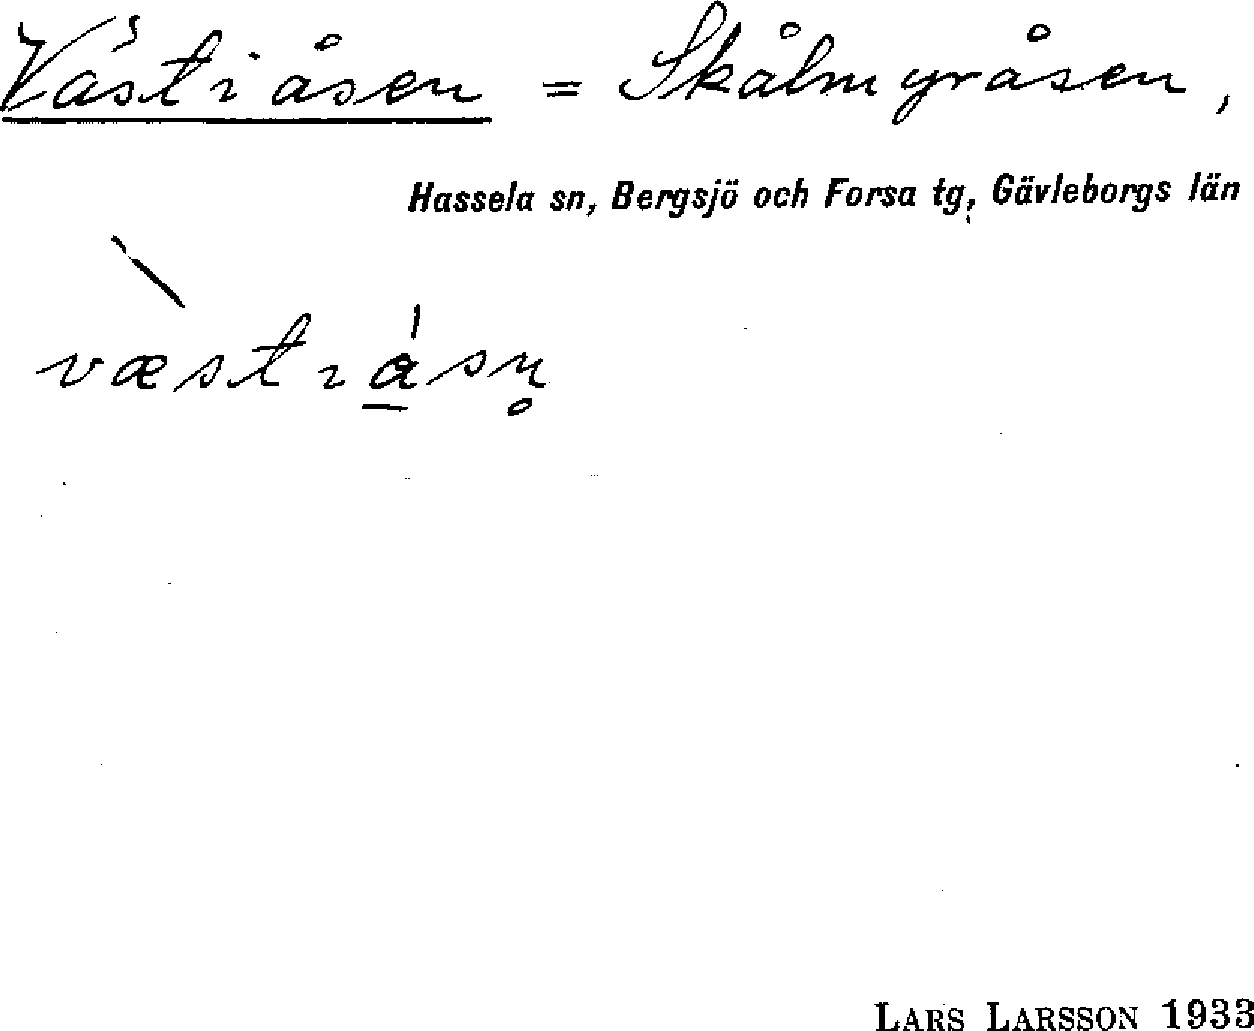 Västiåsen = Skålmyråsen,
Hassela sn, Bergsjö och Forsa tg, Gävleborgs län
væstiåsn̥
LARS LARSSON 1933